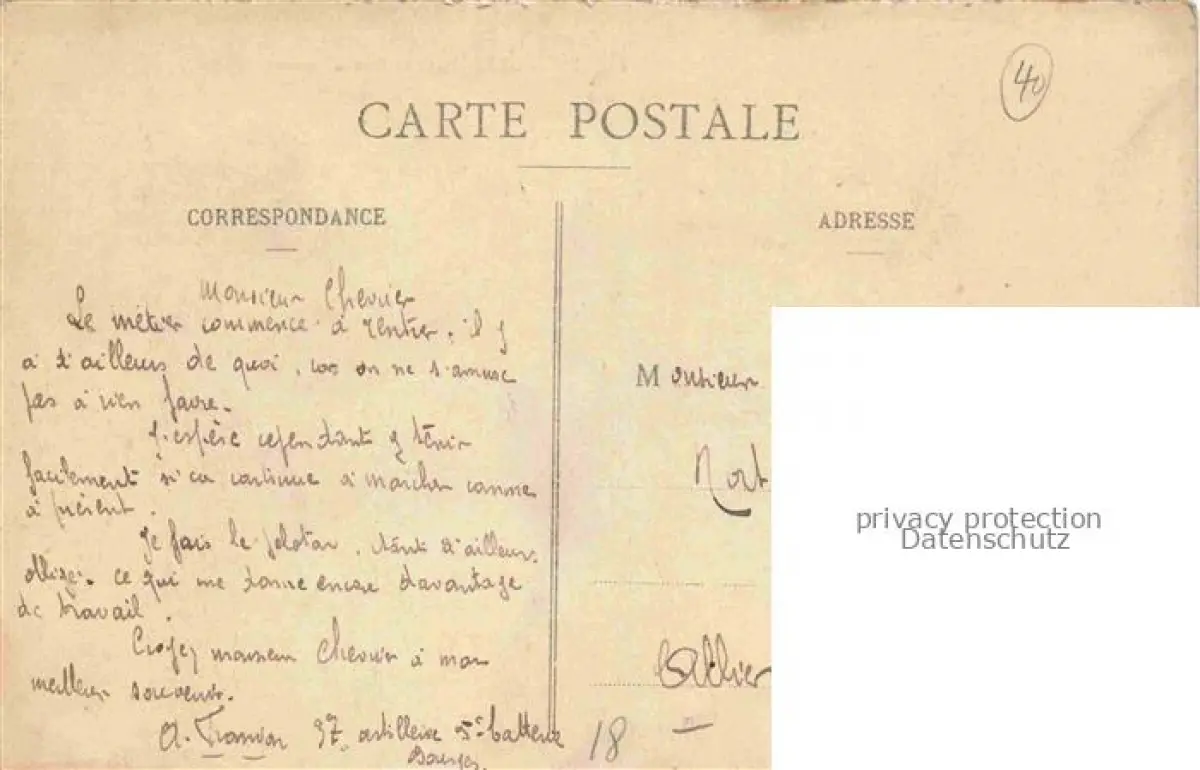 40
CARTE POSTALE
CORRESPONDANCE
ADRESSE
Monsieur Chevrier
Le métier commence à rentrer. il y
a d'ailleurs de quoi, car on ne s'amuse
pas à rien faire.
J'espère cependant y tenir
facilement si ca continue à marcher comme
à présent.
Je fais le peloton, étant d'ailleurs
obligé. ce qui me donne encore davantage
de travail.
Croyez monsieur Chevrier à mon
meilleur souvenir.
A. 37 artillerie 5e batterie
Bourges.
Monsieur
privacy protection
Datenschutz
18